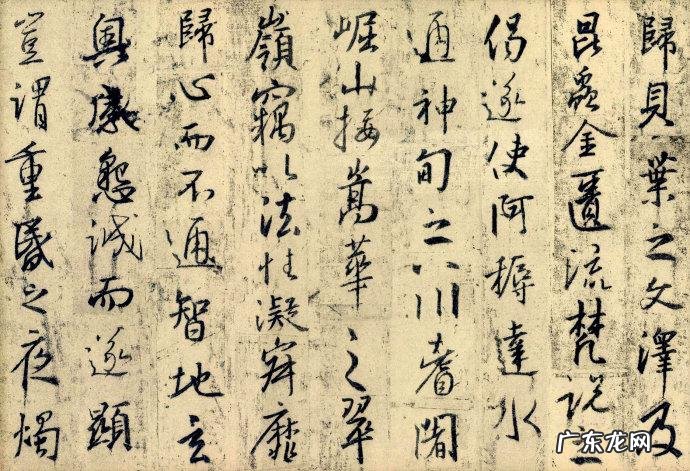 歸貝葉之文澤及
昆蟲金匱流梵說之
偈遂使阿耨達水
通神甸之八川耆闍
崛山接嵩華之翠
嶺竊以法性凝寂靡
歸心而不通智地玄
奧感懇誠而遂顯
豈謂重昏之夜燭
广东龙网